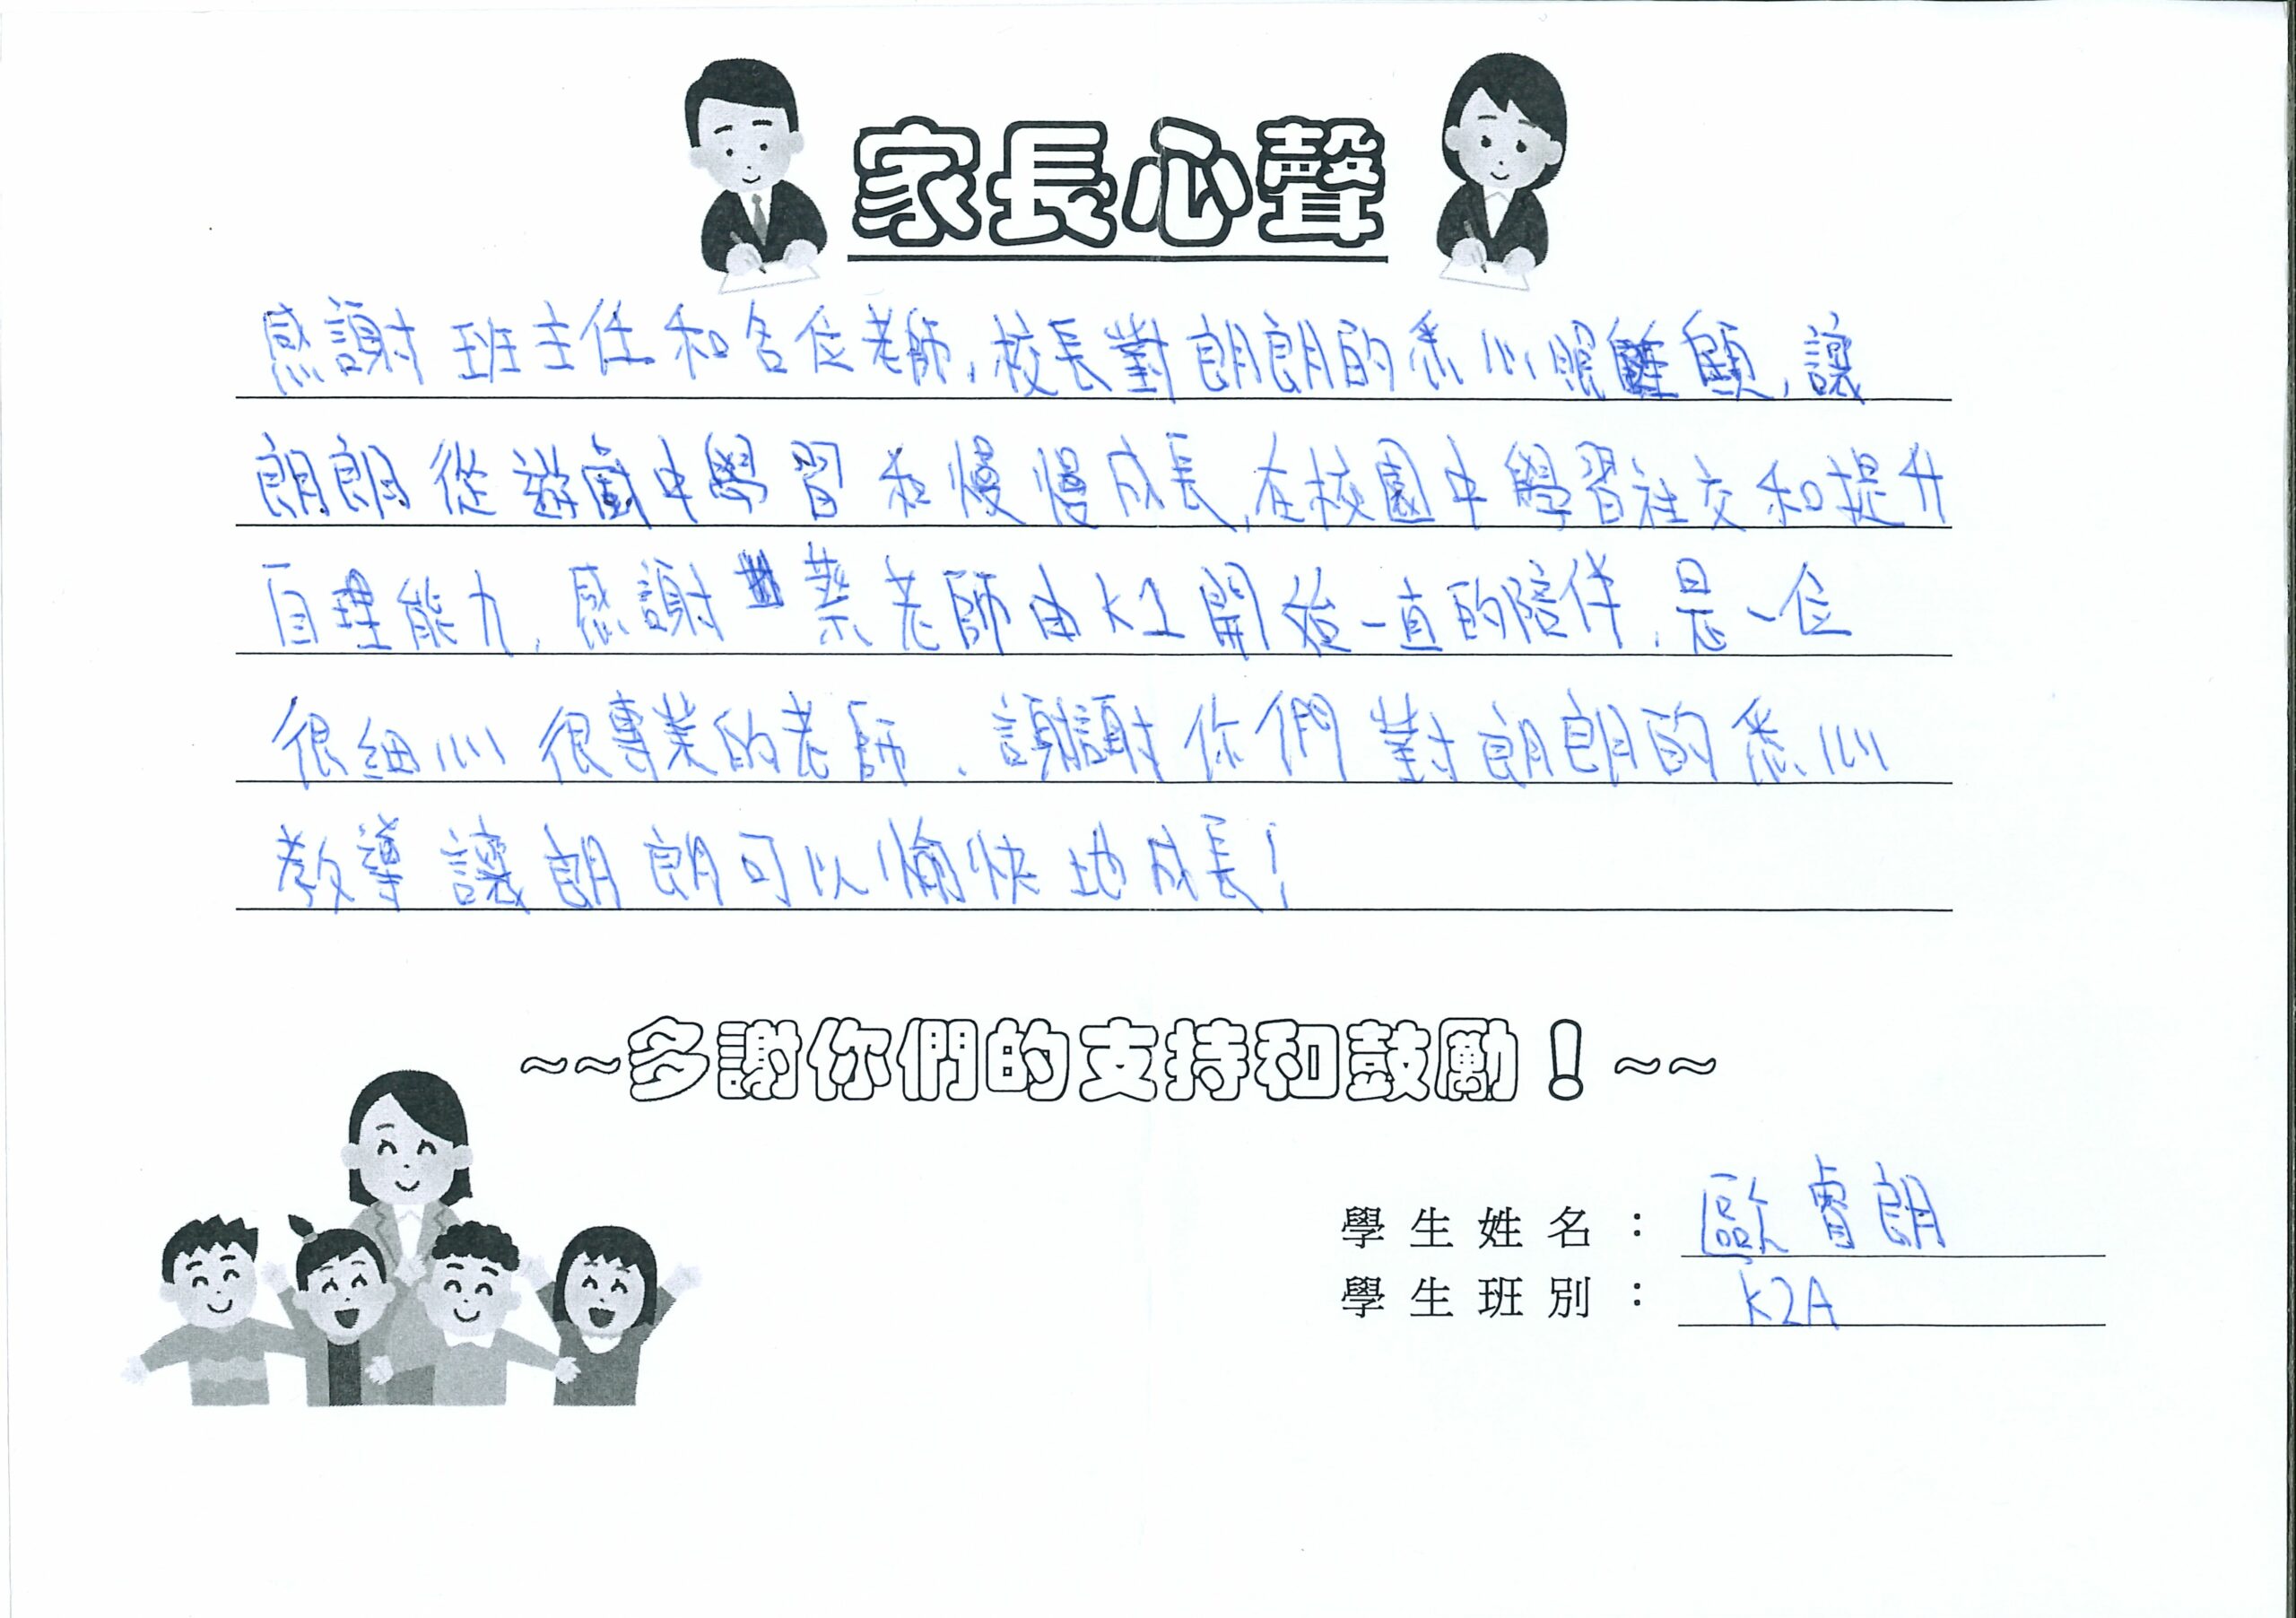 家長心聲
感謝班主任和各位老師,校長對朗朗的悉心照顧,讓
朗朗從遊戲中學習和慢慢成長,在校園中學習社交和提升
自理能力,感謝葉老師由K1開始一直的陪伴,是一位
很細心很專業的老師、謝謝你們對朗朗的悉心
教導讓朗朗可以愉快地成長!
~~多謝你們的支持和鼓勵!~~
學生姓名: 歐睿朗
學生班別: K2A